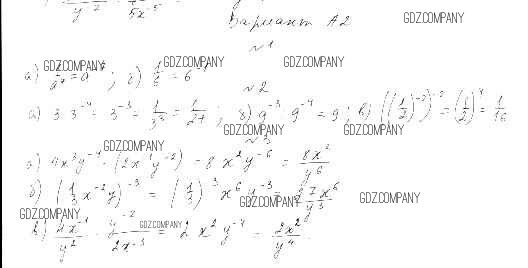 y⁻² 5x⁻⁵
Вариант А2
GDZ.COMPANY
№1
GDZ.COMPANY GDZ.COMPANY GDZ.COMPANY
а) 1/a⁷ = a⁻⁷; б) 1/6 = 6⁻¹
№2
а) 3 · 3⁻⁴ = 3⁻³ = 1/3³ = 1/27; б) 9⁻³ 9⁻⁴ = 9; в) ((1/2)⁻²)⁻² = (1/2)⁴ = 1/16
GDZ.COMPANY GDZ.COMPANY
№3
GDZ.COMPANY
а) 4x³y⁻⁴ · (2x⁻¹y⁻²) = 8x²y⁻⁶ = 8x²/y⁶
б) (1/3 x⁻²y)⁻³ = (1/3)⁻³ x⁶ y⁻³ = 27x⁶/y³
GDZ.COMPANY GDZ.COMPANY
GDZ.COMPANY GDZ.COMPANY
в) 4x⁻¹/y² · y⁻²/2x⁻³ = 2x²y⁻⁴ = 2x²/y⁴